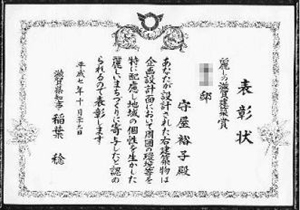 表彰状
麗しの滋賀建築賞
邸
守屋裕子殿
あなたが設計された右建築物は
企画設計面において周囲の環境等を
特に配慮し地域の個性を生かした
麗しいまちづくりに寄与したと認め
られるので表彰します
平成七年十月三十日
滋賀県知事 稲葉稔